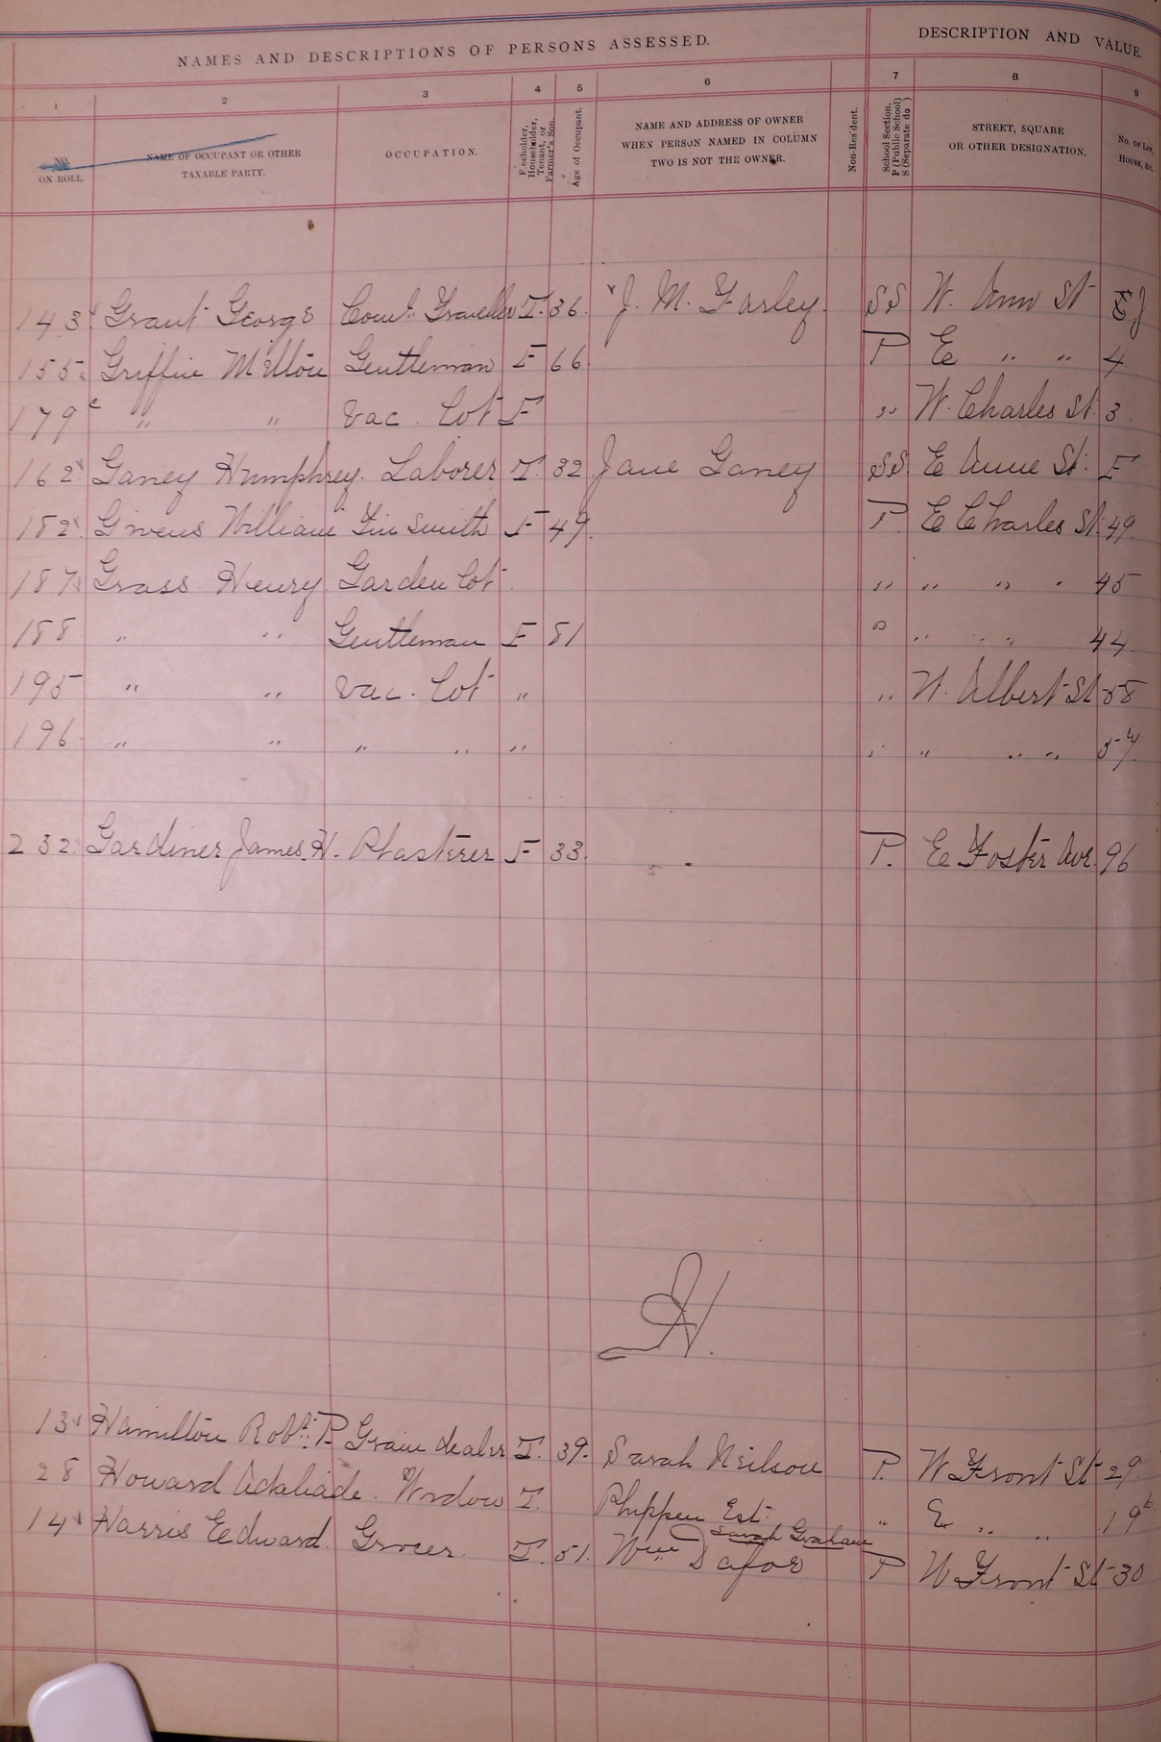 NAMES AND DESCRIPTIONS OF PERSONS ASSESSED. DESCRIPTION AND VALUE
1 2 3 4 5 6 7 8 9
NO. ON ROLL. NAME OF OCCUPANT OR OTHER TAXABLE PARTY. OCCUPATION. Freeholder, Householder, Tenant, or Farmer's Son. Age of Occupant. NAME AND ADDRESS OF OWNER WHEN PERSON NAMED IN COLUMN TWO IS NOT THE OWNER. Non-Resident. School Section, P (Public School) S (Separate do ) STREET, SQUARE OR OTHER DESIGNATION. No. of Lot, House, &c.
143 Grant George Coml. Traveller T. 36. J. M. Farley. SS W. Ann St
155 Griffin Milton Gentleman F 66 P E " " 4
179 " " Vac. Lot F " W. Charles St. 3
162 Ganey Humphrey. Laborer T. 32 Jane Ganey SS E Anne St. F
182 Givens William Tin Smith F 49. P E Charles St. 49
187 Grass Henry Garden Lot " " " " 45
188 " " Gentleman F 81 " " " " 44
195 " " Vac. Lot " " W. Albert St 58
196 " " " " " " " " " 57
232 Gardiner James H. Plasterer F 33. P. E Foster Ave. 96
H.
13 Hamilton Robt. P. Grain dealer T. 39. Sarah Neilson P. W Front St 29
28 Howard Adaliade. Widow T. Phippen Est. " E " " 19
Sarah Graham
14 Harris Eedward. Grocer. T. 51. Wm Dafoe P W Front St 30